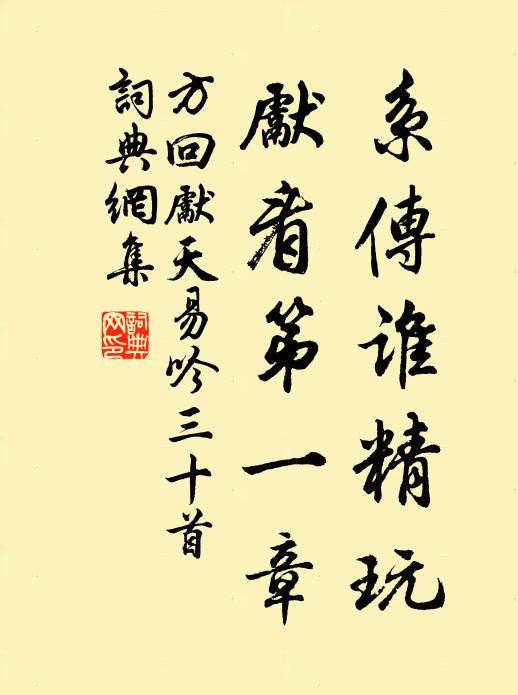 系傳誰精玩
獻看第一章
方回獻天易吟三十首
詞典網集
詞典
网印